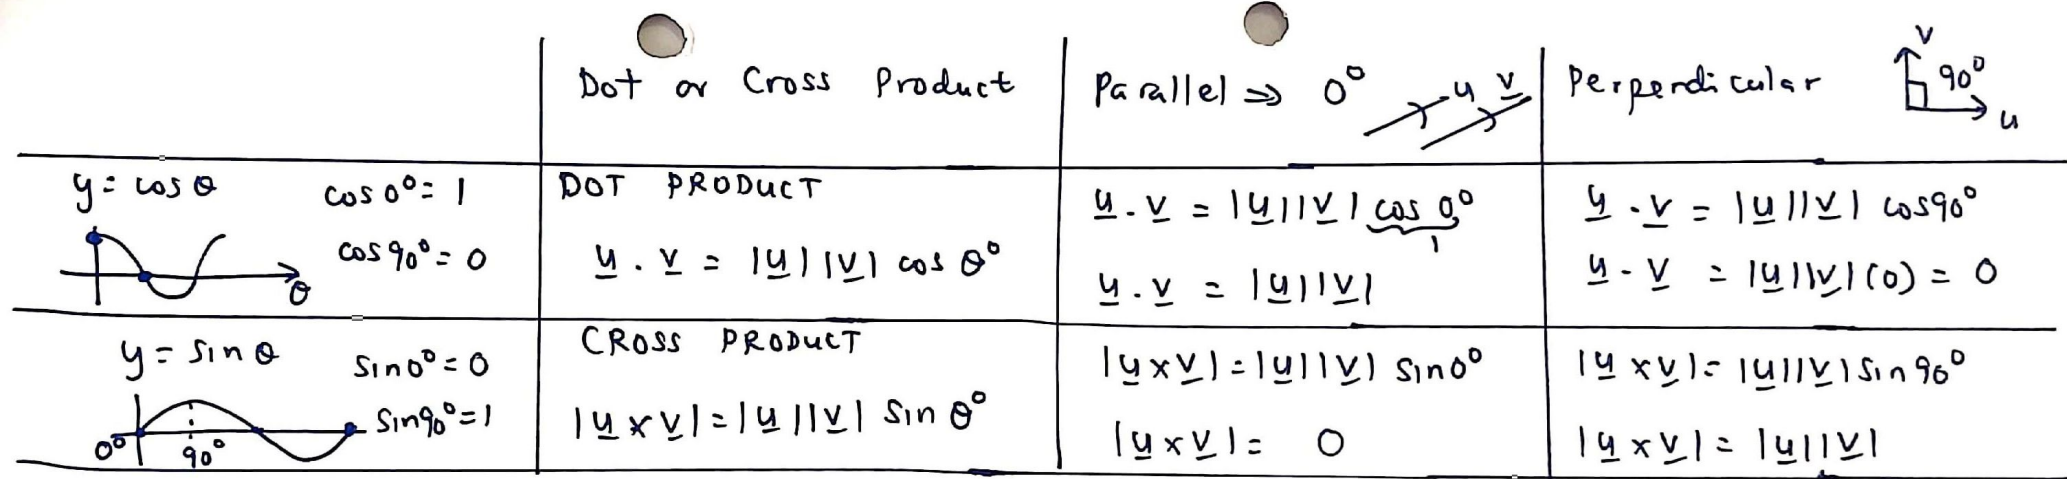 Dot or Cross Product
Parallel ⇒ 0° u v
Perpendicular v 90° u
y = cos θ cos 0° = 1
cos 90° = 0
θ
DOT PRODUCT
u . v = |u| |v| cos θ°
u . v = |u||v| cos 0°
1
u . v = |u||v|
u . v = |u||v| cos90°
u . v = |u||v|(0) = 0
y = sin θ sin 0° = 0
sin90° = 1
0° 90°
CROSS PRODUCT
|u x v| = |u||v| sin θ°
|u x v| = |u||v| sin0°
|u x v| = 0
|u x v| = |u||v| sin 90°
|u x v| = |u||v|